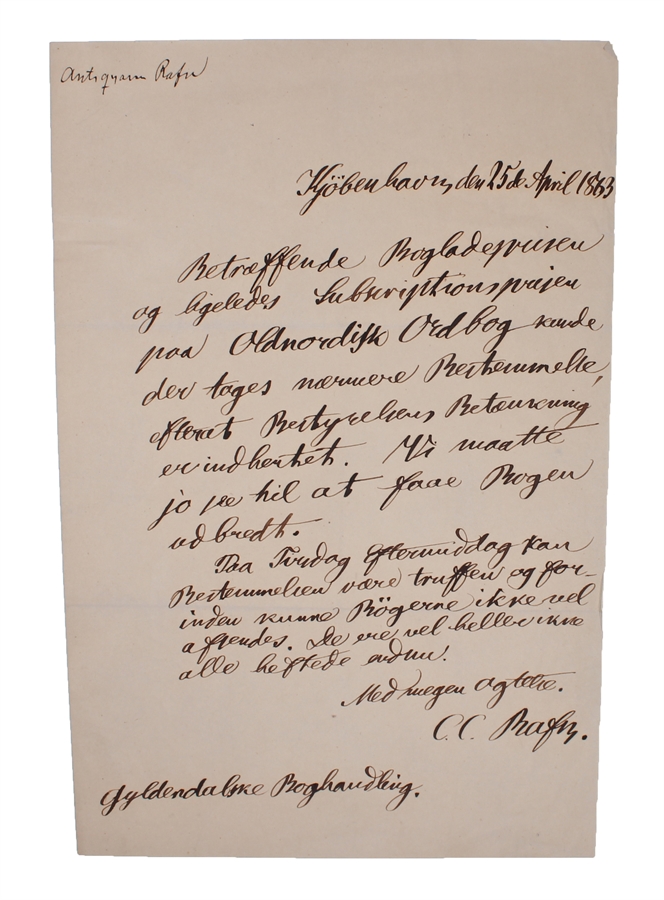 Antiquar Rafn
Kjöbenhavn, den 25de April 1863
Betræffende Bogladeprisen
og ligeledes Subscriptionsprisen
paa Oldnordisk Ordbog kunde
der tages nærmere Bestemmelse,
efterat Bestyrelsens Betænkning
er indhentet. Vi maatte
jo see til at faae Bogen
udbredt.
Paa Tirsdag Eftermiddag kan
Bestemmelsen være truffen og for-
inden kunne Bögerne ikke vel
afsendes. De ere vel heller ikke
alle heftede endnu.
Med megen Agtelse.
C. C. Rafn.
Gyldendalske Boghandling.